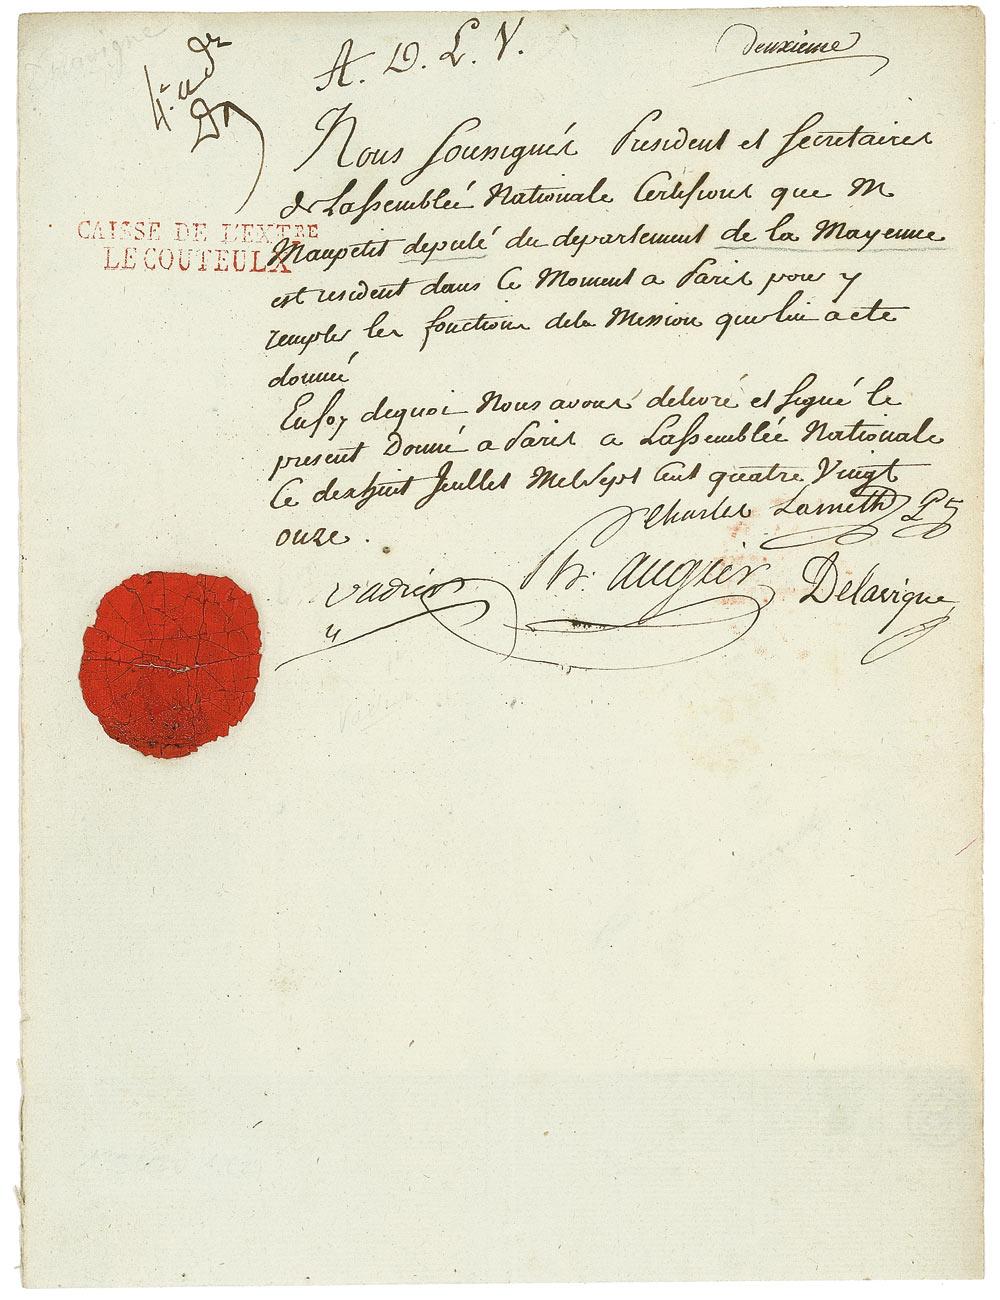 A. D. L. V.
deuxieme
Nous soussignés President et Secretaires
de Lassemblée Nationale Certifions que M
Maupetit deputé du departement de la Mayenne
est resident dans Ce Moment a Paris pour y
remplir les fonctions dela Mission qui lui a ete
donné
Enfoy dequoi Nous avons delivré et signé le
present Donné a Paris a Lassemblée Nationale
Ce dexhuit Juillet Mil Sept Cent quatre Vingt
onze.
CAISSE DE L'EXTRE
LE COUTEULX
Charles Lameth
Augier
vadier
Delavigne